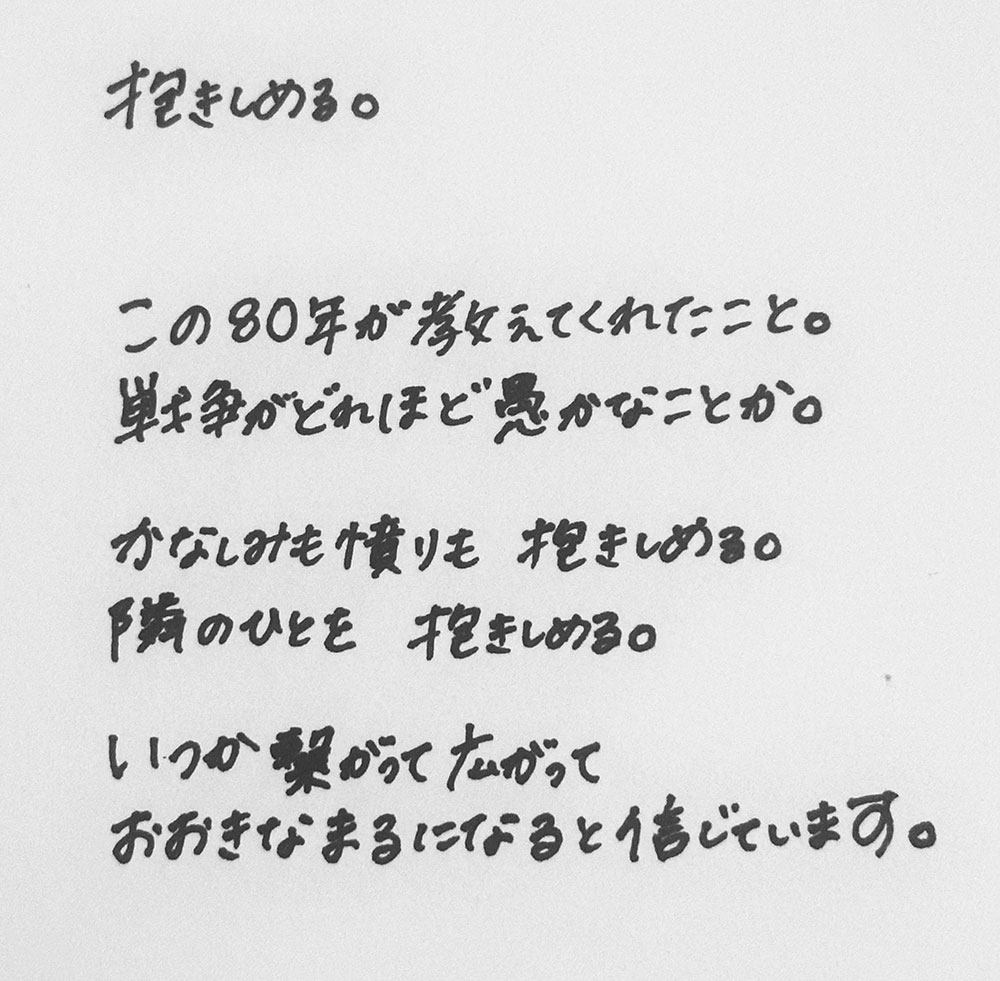 抱きしめる。
この80年が教えてくれたこと。
戦争がどれほど愚かなことか。
かなしみも憤りも 抱きしめる。
隣のひとを 抱きしめる。
いつか繋がって広がって
おおきなまるになると信じています。